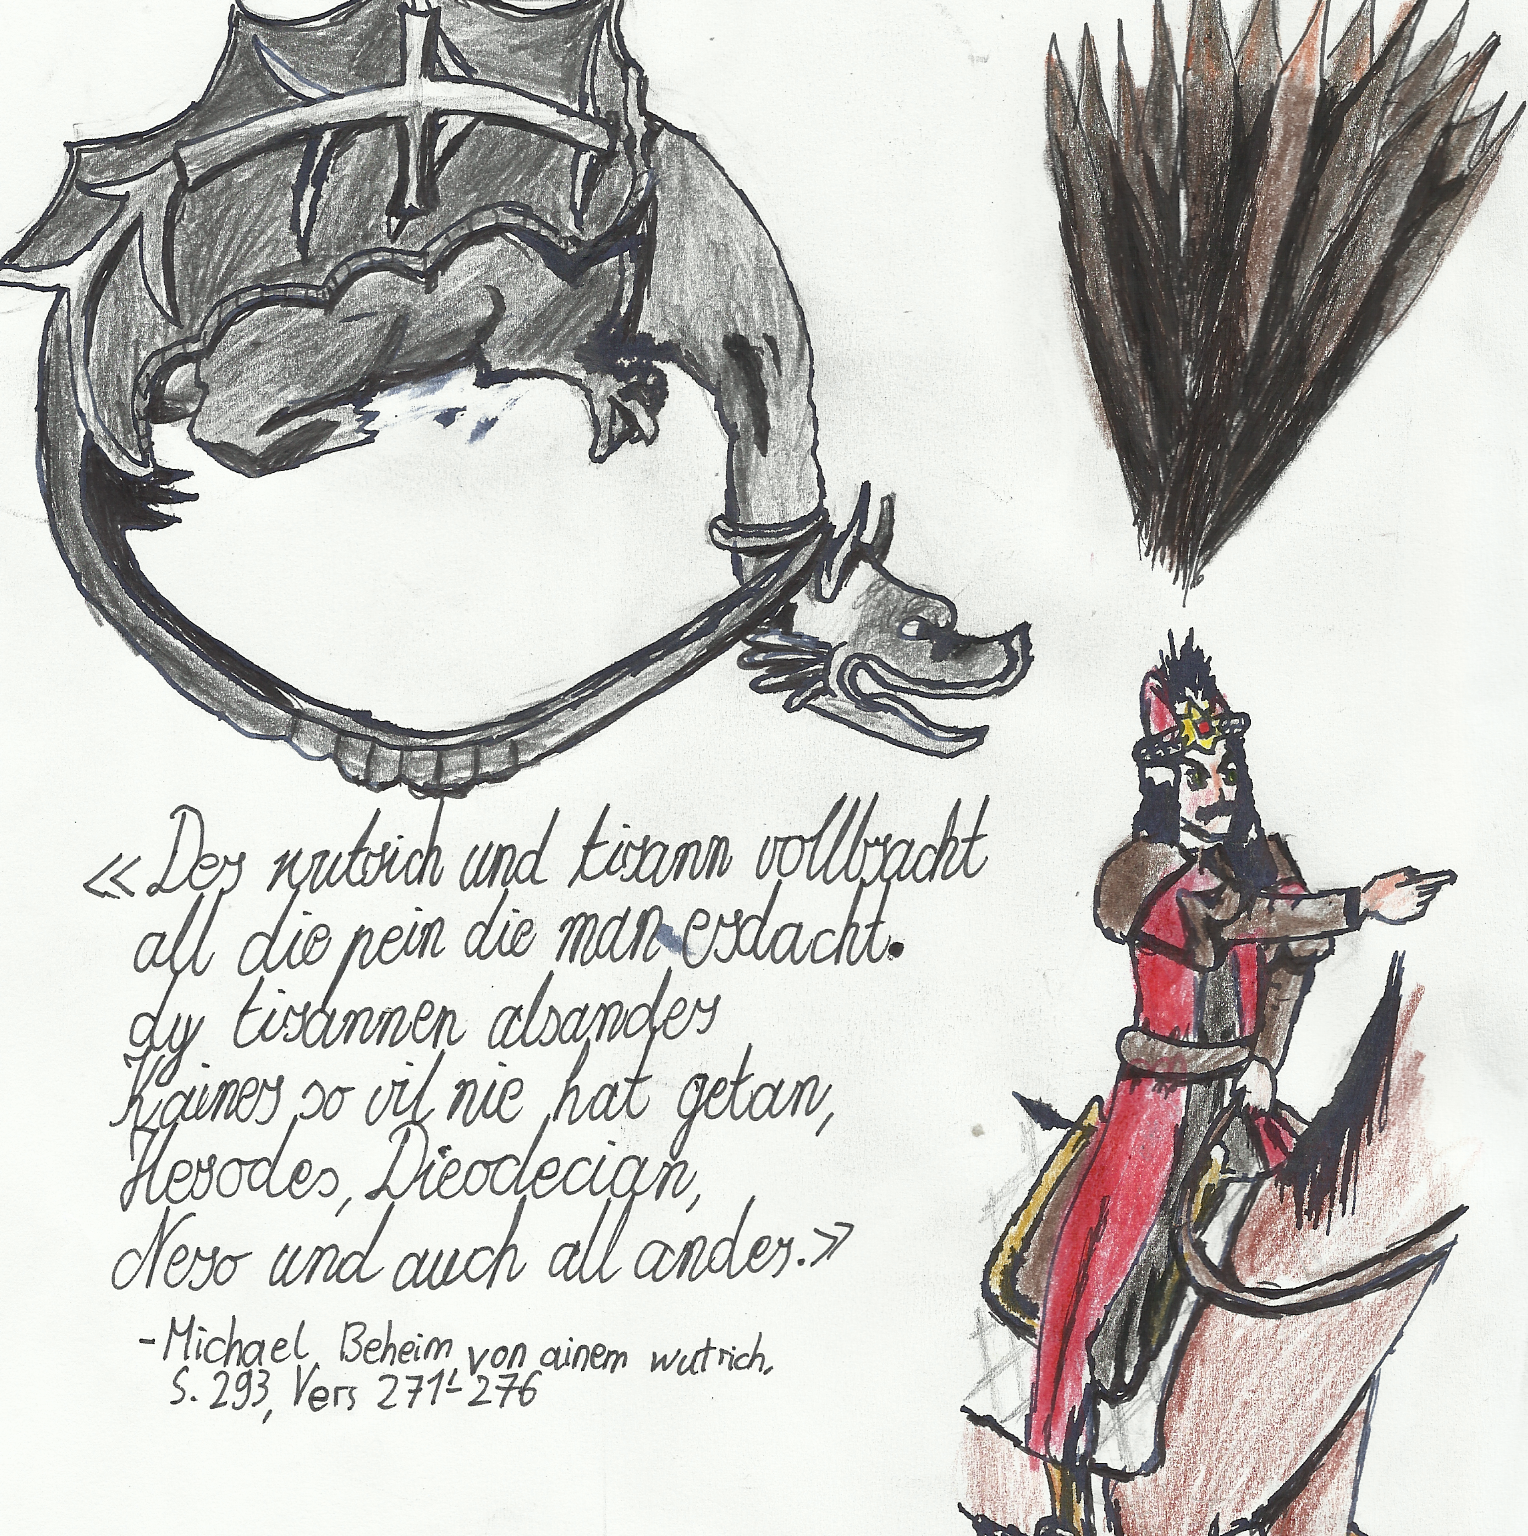 «Der wutrich und tirann vollbracht
all die pein die man erdacht.
dy tirannen alsander
Kainer so vil nie hat getan,
Herodes, Dieodecian,
Nero und auch all ander.»
- Michael Beheim von ainem wutrich.
S. 293, Vers 271-276